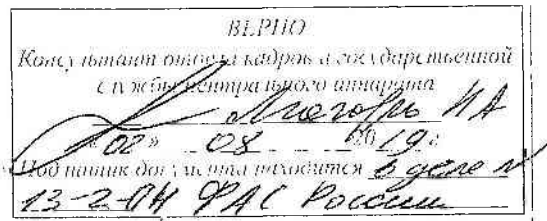 ВЕРНО
Консультант отдела кадров и государственной
службы центрального аппарата
И А
«02» 08 2019 г
Подлинник документа находится в деле №
13-2-ПН ФАС России